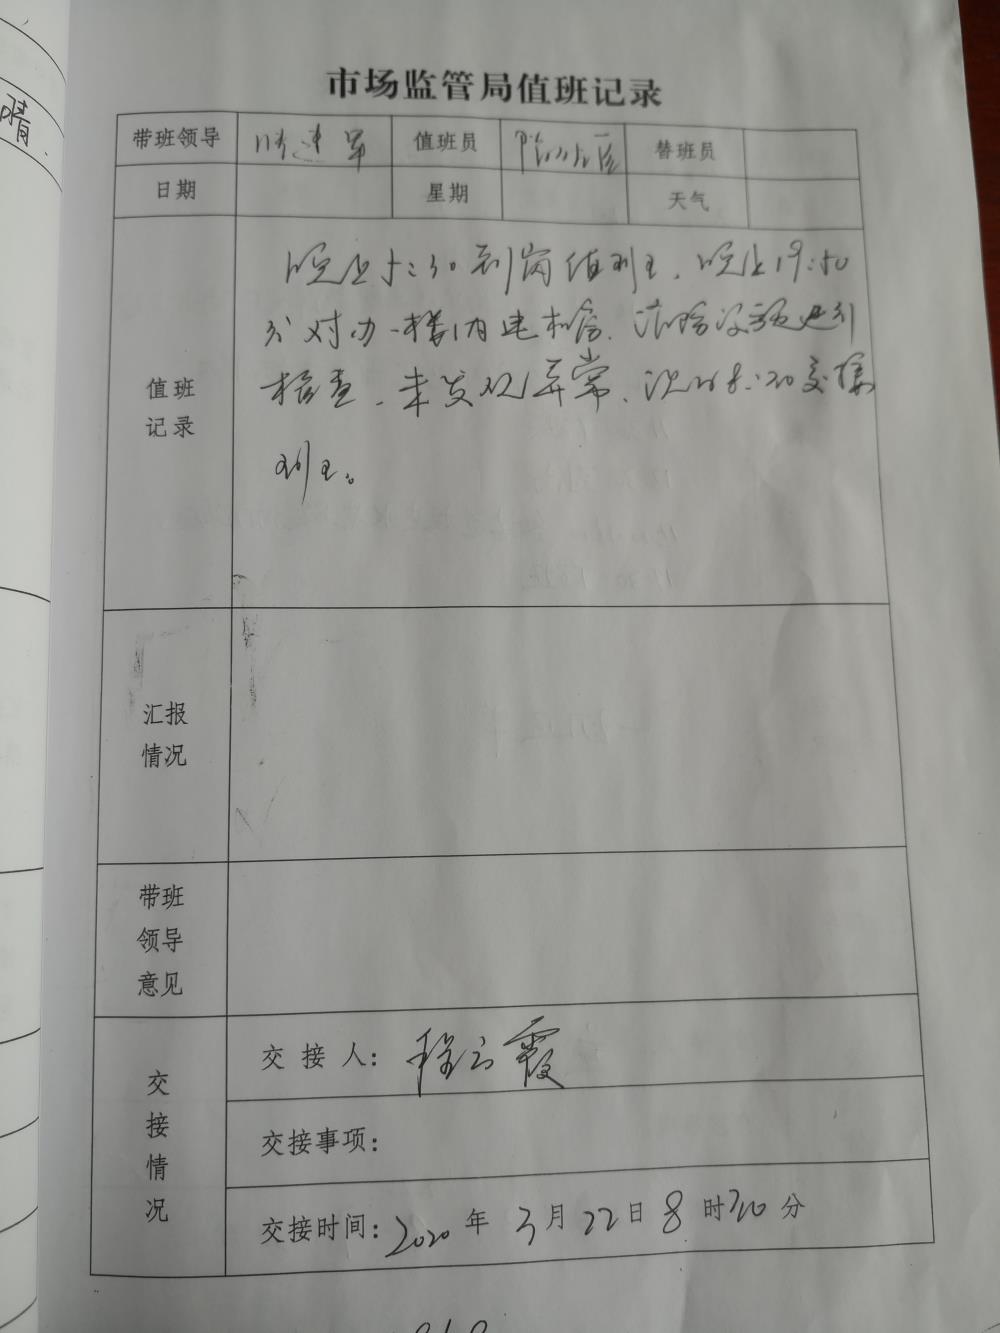 晴.
市场监管局值班记录
带班领导 建军 值班员 替班员
日期 星期 天气
值班记录
晚上5:30到岗值班,晚上19:50
分对办一楼内 消防设施进行
检查,未发现异常,次日8:30交接
班。
汇报情况
带班领导意见
交接情况
交接人:程云霞
交接事项:
交接时间:2020年3月22日8时30分